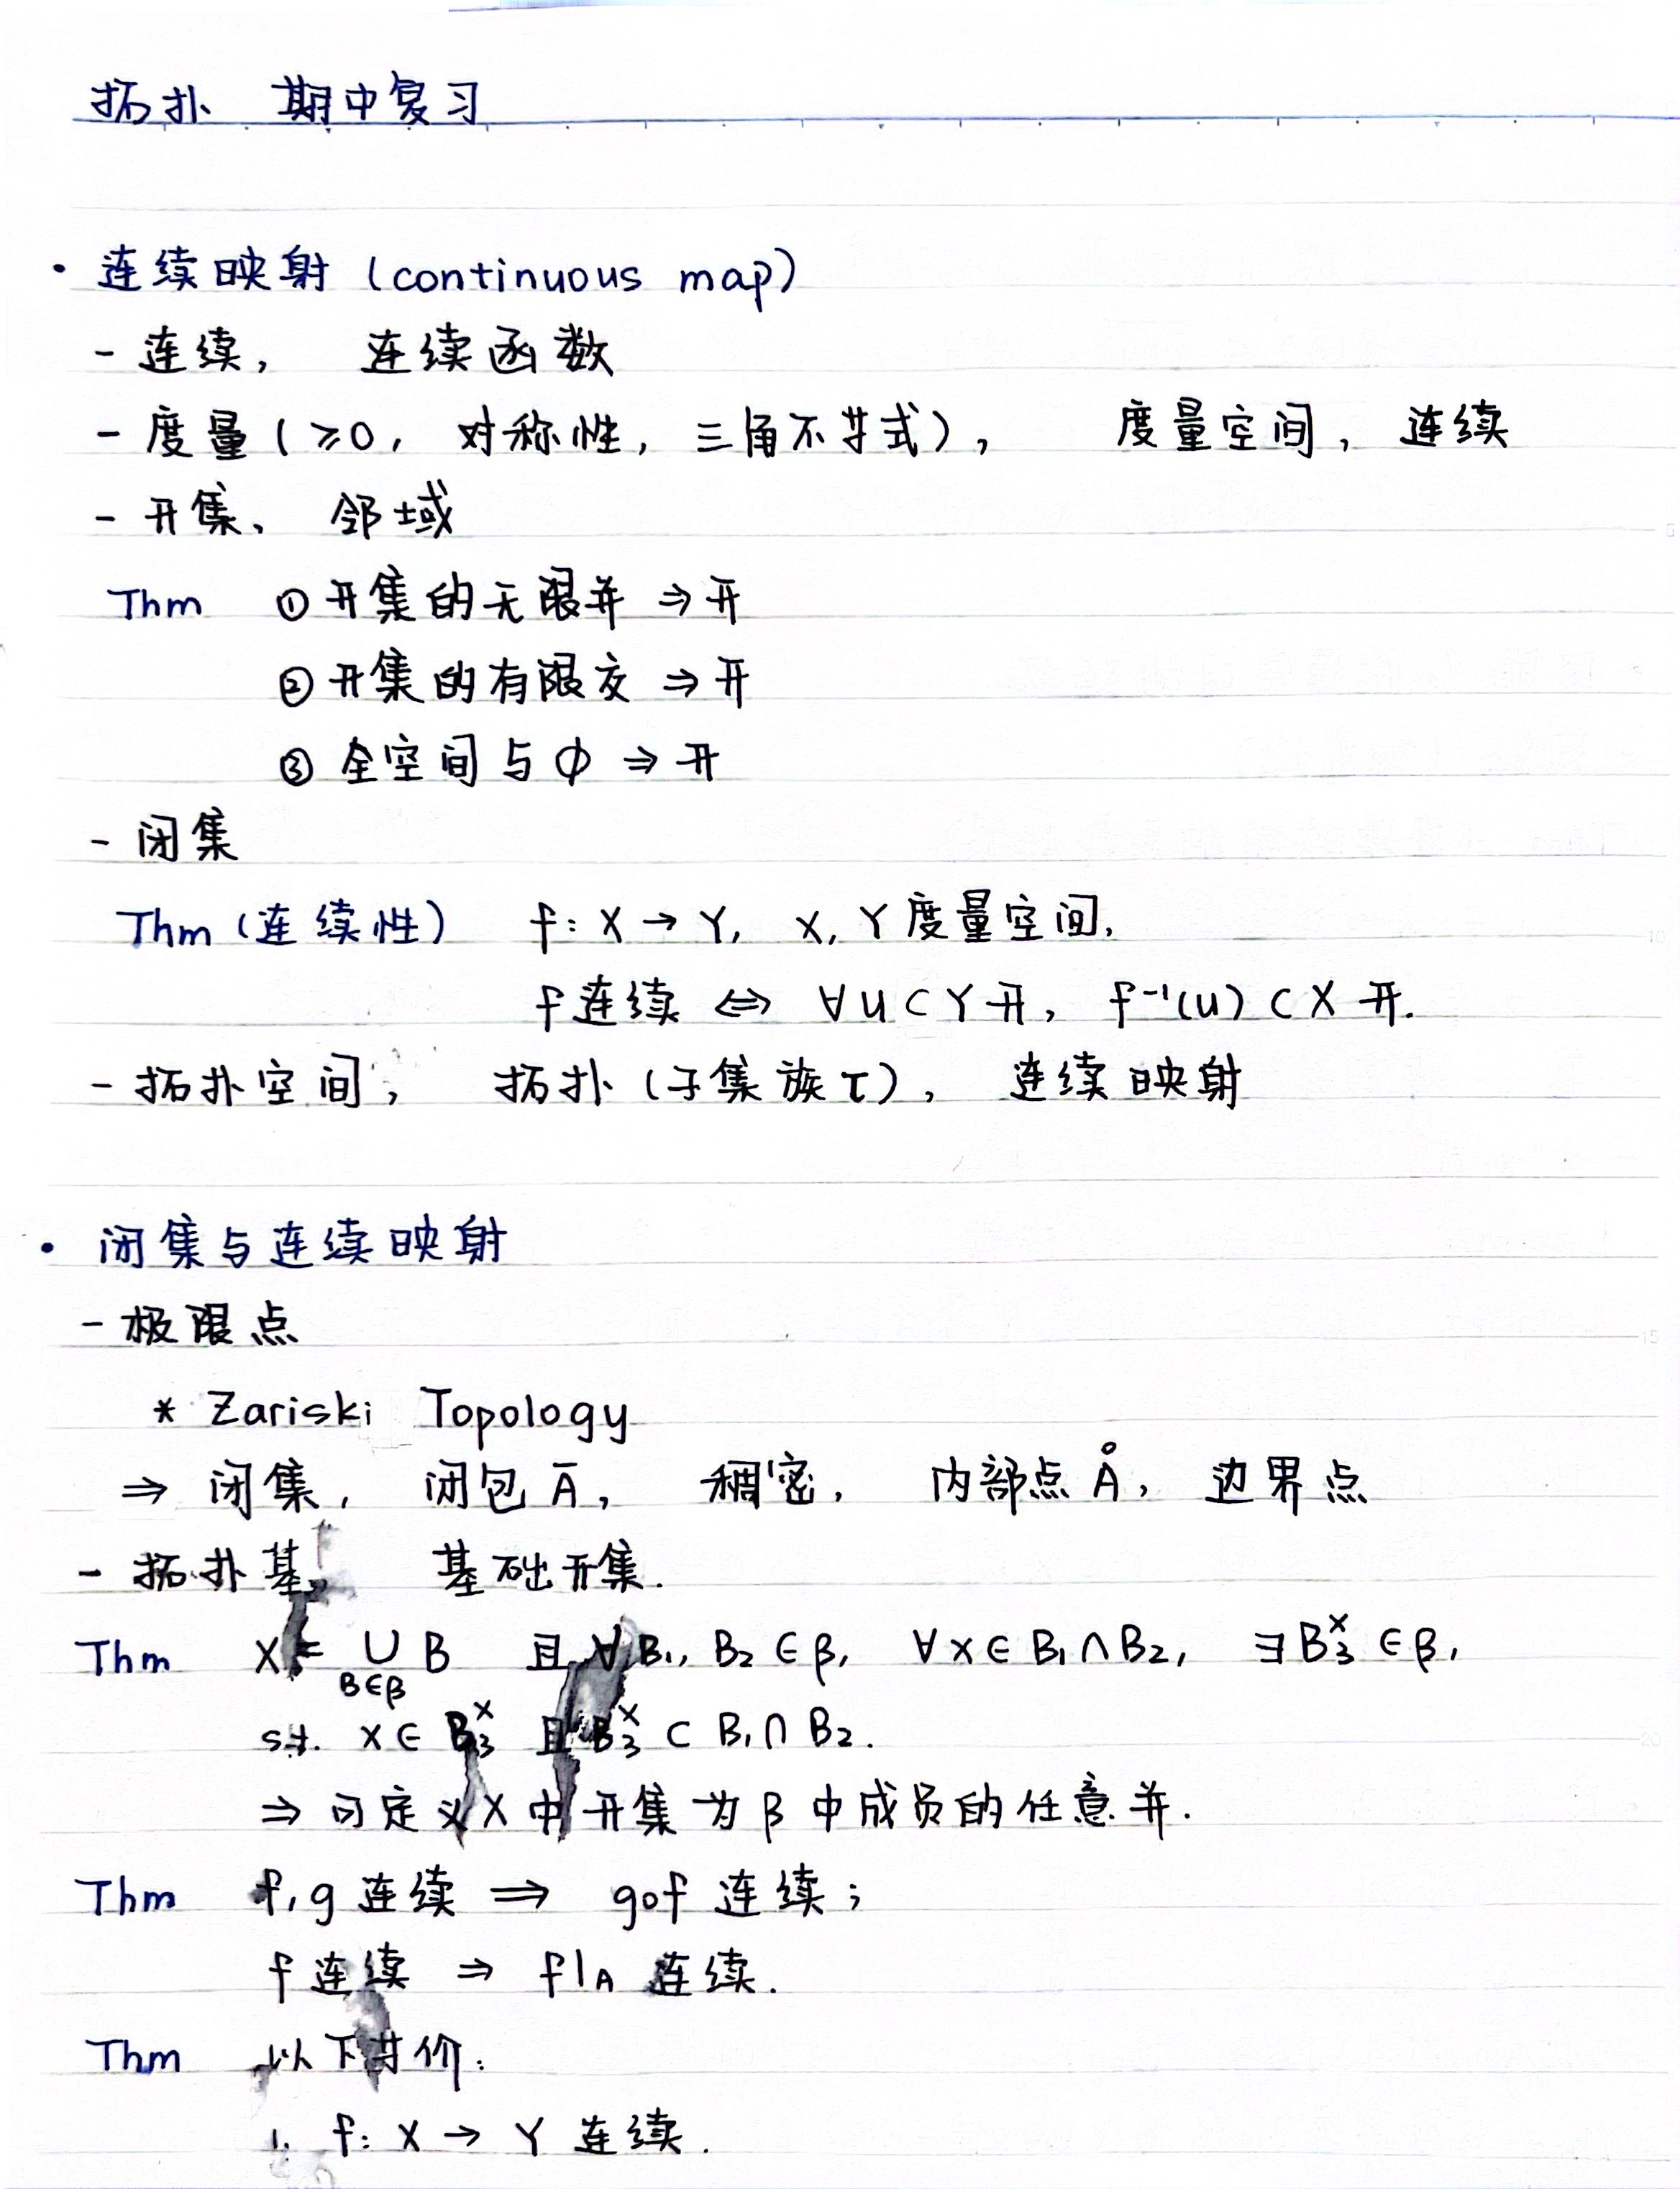 拓扑 期中复习
· 连续映射 (continuous map)
- 连续, 连续函数
- 度量 ( ≥0, 对称性, 三角不等式), 度量空间, 连续
- 开集、 邻域
Thm ① 开集的无限并 ⇒ 开
② 开集的有限交 ⇒ 开
③ 全空间与 ϕ ⇒ 开
- 闭集
Thm (连续性) f: X → Y, X, Y 度量空间,
f 连续 ⇔ ∀U ⊂ Y 开, f⁻¹(U) ⊂ X 开.
- 拓扑空间, 拓扑 (子集族 τ), 连续映射
· 闭集与连续映射
- 极限点
* Zariski Topology
⇒ 闭集, 闭包 Ā, 稠密, 内部点 Å, 边界点
- 拓扑基, 基础开集.
Thm X = ∪_{B∈β} B 且 ∀B₁, B₂ ∈ β, ∀x ∈ B₁∩B₂, ∃B₃ˣ ∈ β,
s.t. x ∈ B₃ˣ 且 B₃ˣ ⊂ B₁∩B₂.
⇒ 可定义 X 中开集为 β 中成员的任意并.
Thm f, g 连续 ⇒ g∘f 连续;
f 连续 ⇒ f|_A 连续.
Thm 以下等价:
1. f: X → Y 连续.